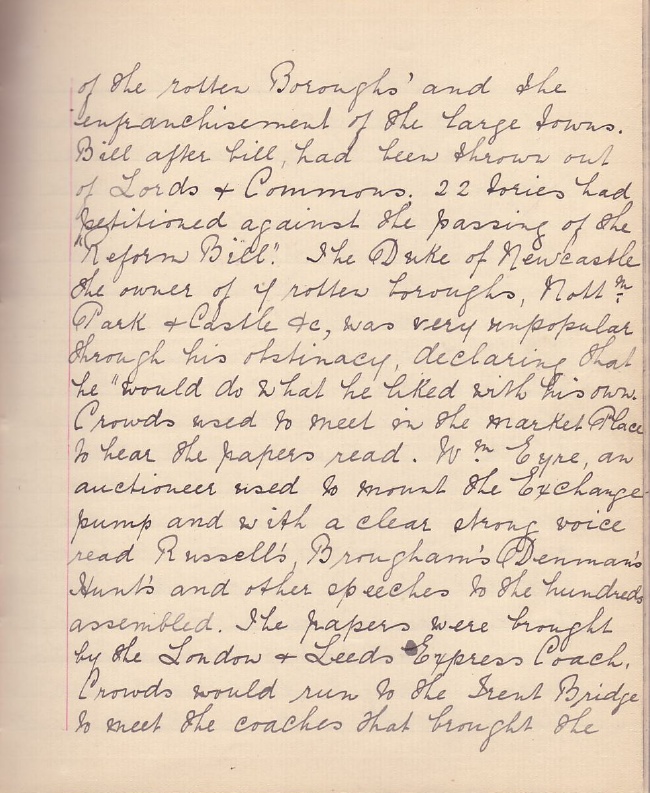 of the rotten Boroughs' and the
enfranchisement of the large towns.
Bill after bill, had been thrown out
of Lords & Commons. 22 Tories had
petitioned against the passing of the
"Reform Bill". The Duke of Newcastle
the owner of 4 rotten boroughs, Nottm
Park & Castle &c, was very unpopular
through his obstinacy, declaring that
he "would do what he liked with his own.
Crowds used to meet in the market Place
to hear the papers read. Wm Eyre, an
auctioneer used to mount the Exchange
pump and with a clear strong voice
read Russell's, Brougham's Denman's
Hunt's and other speeches to the hundreds
assembled. The papers were brought
by the London & Leeds Express Coach.
Crowds would run to the Trent Bridge
to meet the coaches that brought the